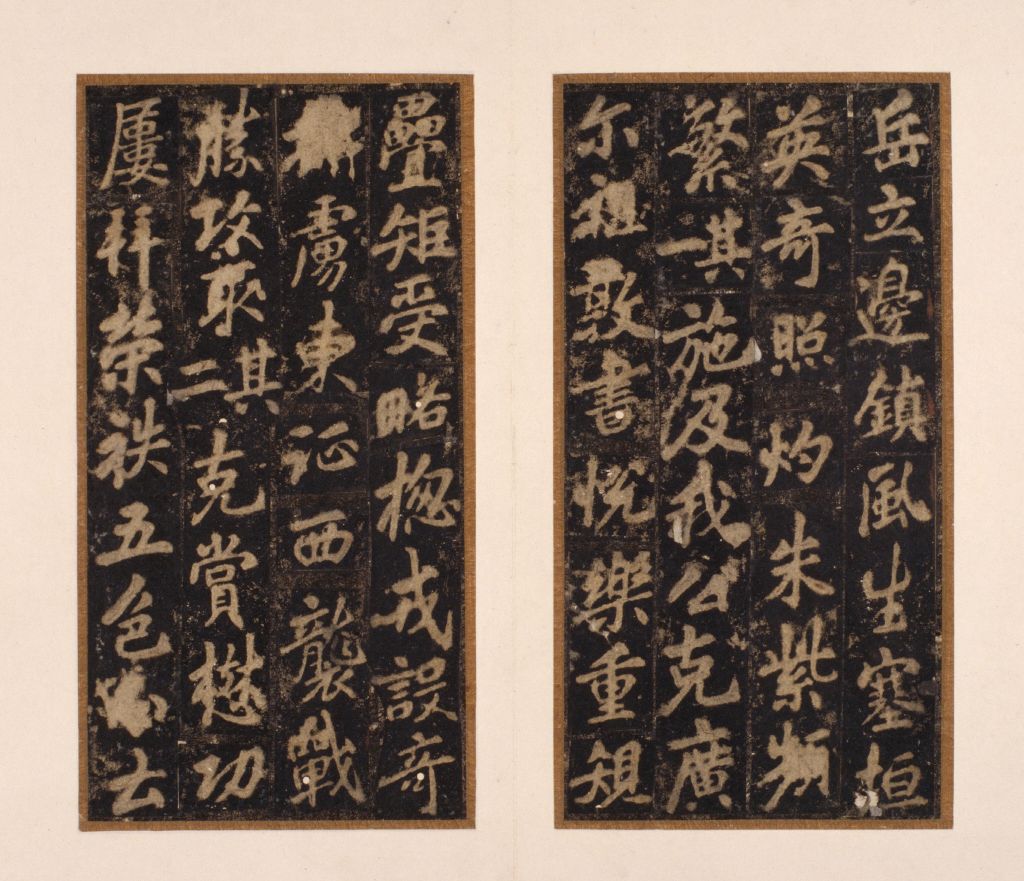 岳立邊鎮風生塞垣
英奇照灼朱紫頻
繁其一施及我公克廣
尔祖敦書悅樂重規
疊矩受略揔戎設奇
虜東征西襲戰
勝攻取其二克賞懋功
屢拜榮秩五邑土